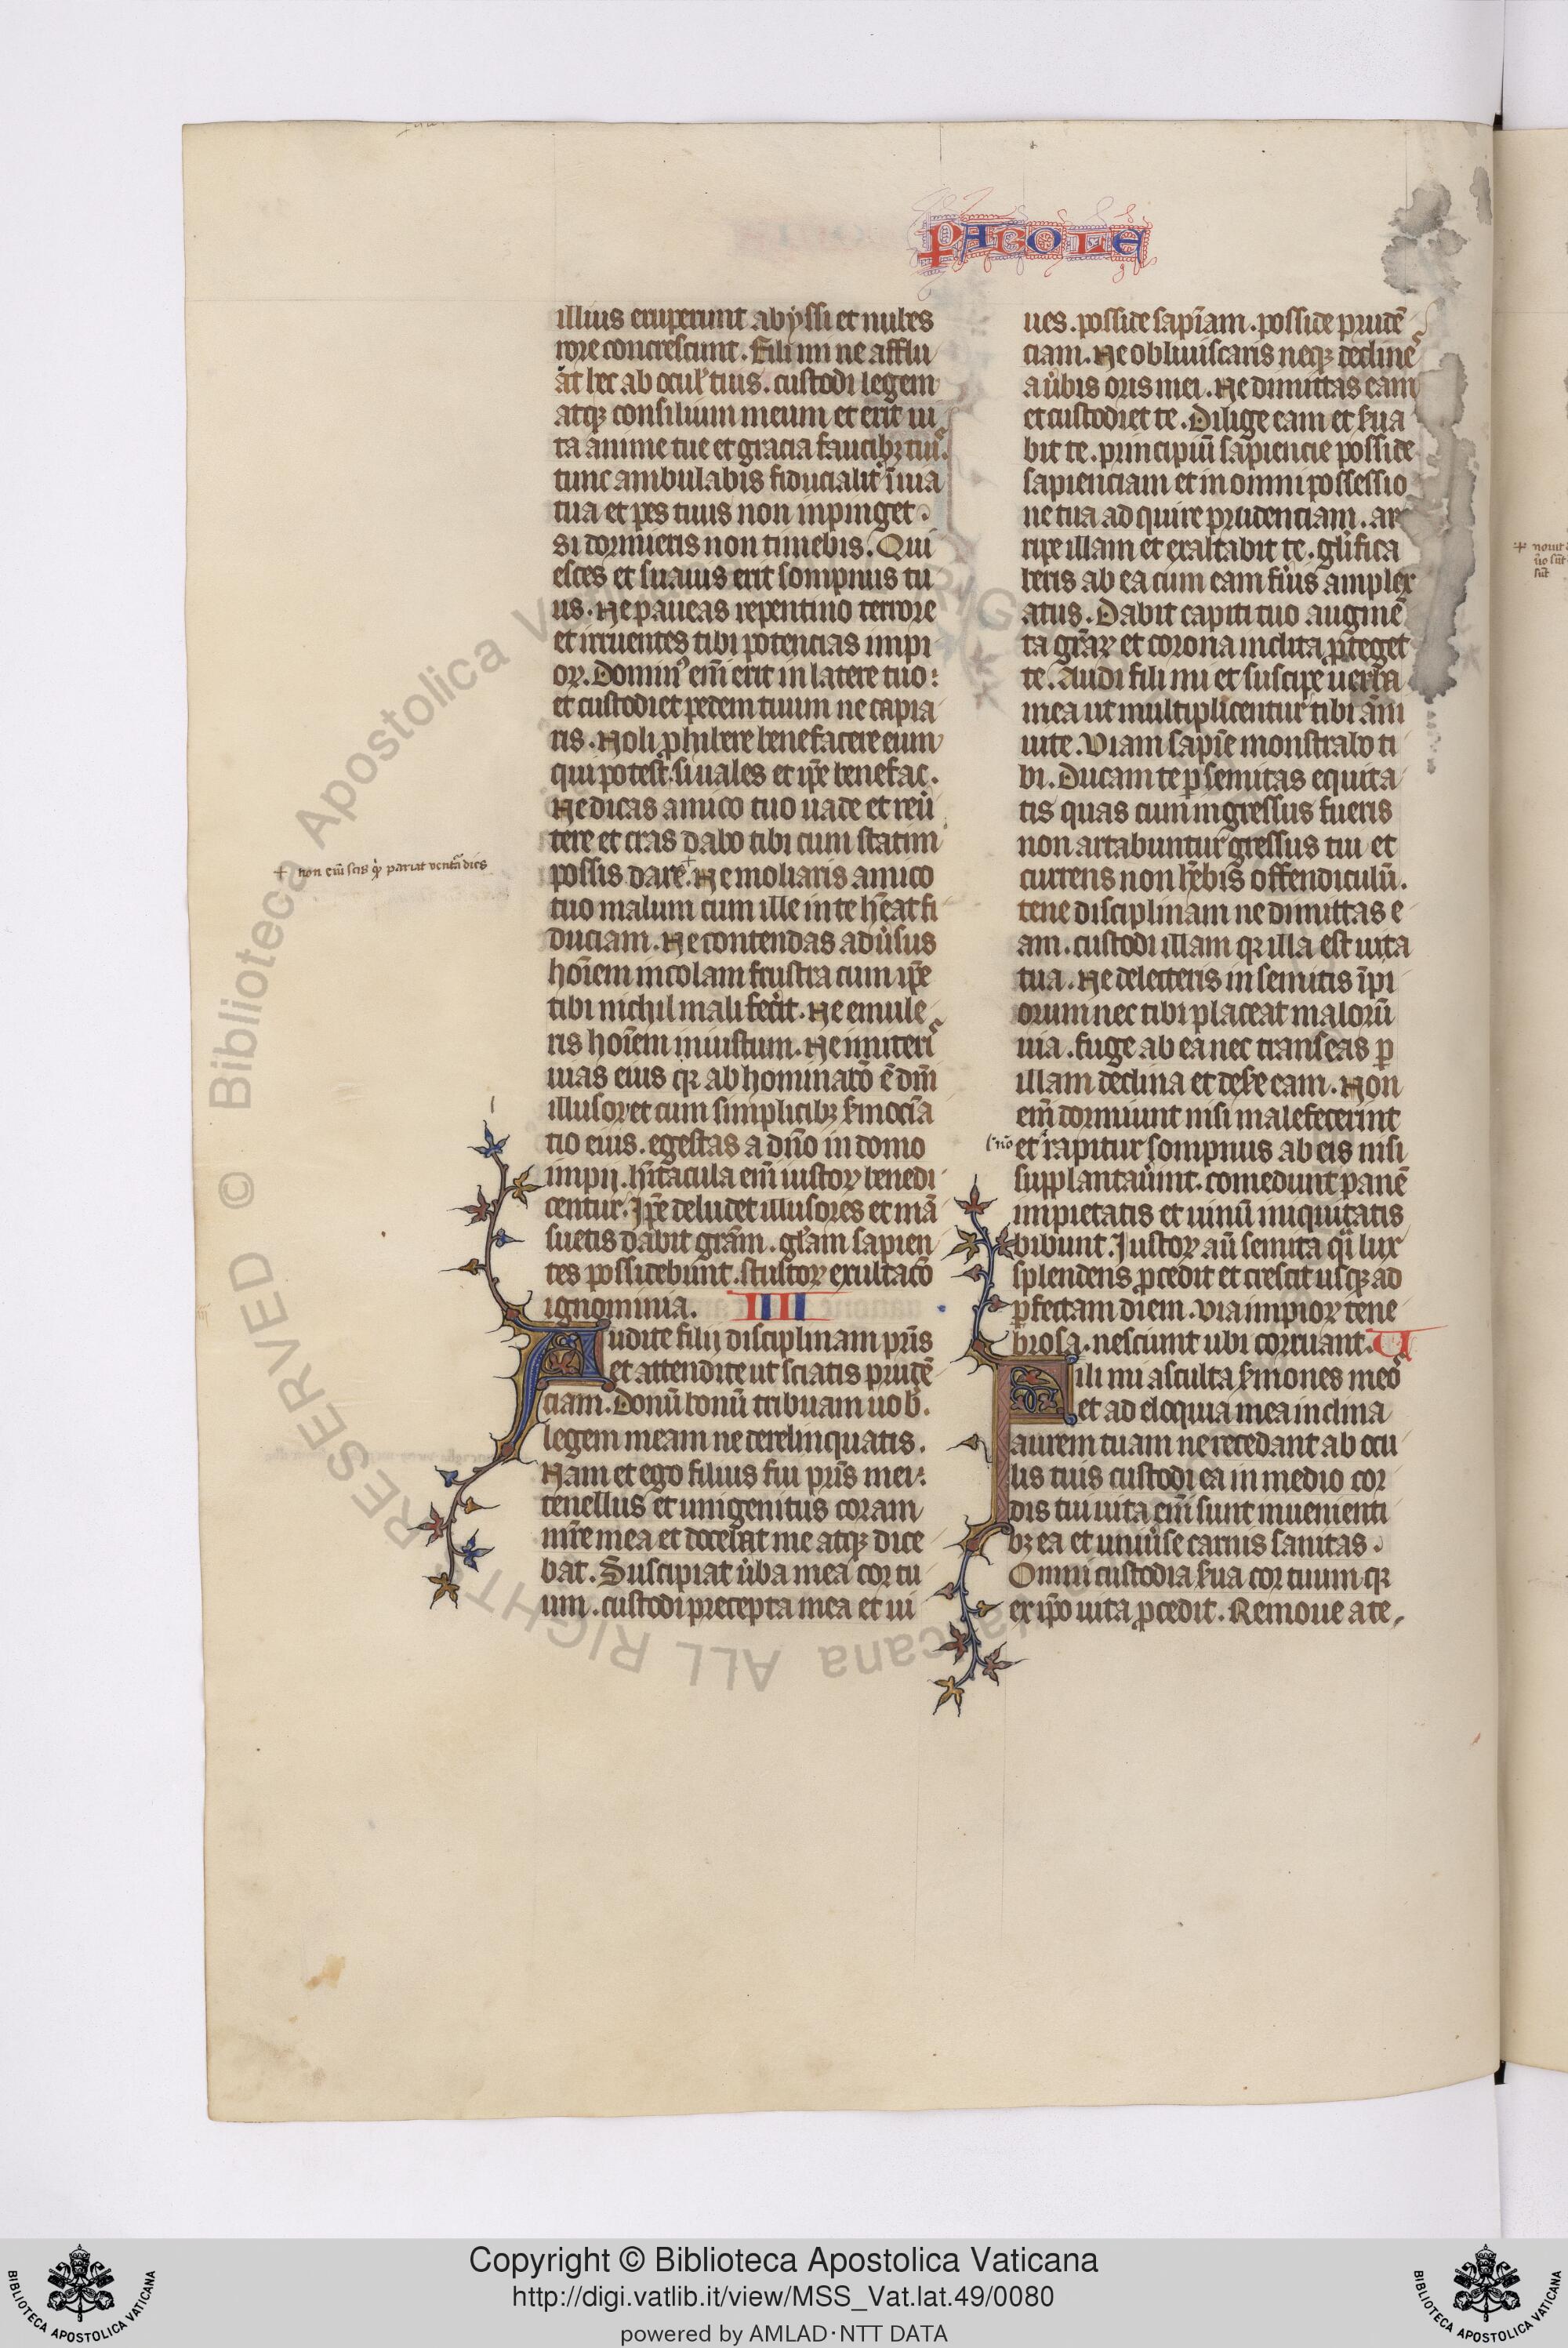 PABOLE
illius eruperunt abyssi et nubes
rore concrescunt. Fili mi ne afflu
āt hec ab ocul' tuis. custodi legem
atqȝ consilium meum et erit ui
ta anime tue et gracia faucibȝ tuis.
tunc ambulabis fiducialit' ī uia
tua et pes tuus non inpinget.
si dormieris non timebis. Qui
esces et suauis erit sompnus tu
us. Ne paueas repentino terrore
et irruentes tibi potencias impi
oꝝ. Domin' em̄ erit in latere tuo:
et custodiet pedem tuum ne capia
ris. Noli ꝓhibere benefacere eum
qui potest. si uales et ip̄e benefac.
Ne dicas amico tuo uade et reu'
tere et cras dabo tibi cum statim
possis dare.+ Ne moliaris amico
+ non em̄ scis qͥ pariat uent'a dies
tuo malum cum ille in te hēat fi
duciam. Ne contendas adu'sus
hoīem incolam frustra cum ip̄e
tibi nichil mali fec'it. Ne emule
ris hoīem iniustum. Ne imiteris
uias eius qꝛ abhominatō ē dn̄i
illusor et cum simplicibȝ s'mocīa
tio eius. egestas a dn̄o in domo
impij. hītacula em̄ iustoꝝ benedi
centur. Ip̄e deludet illusores et mā
suetis dabit grām. gl'am sapien
tes possidebunt. stultoꝝ exultacō
ignominia. IIII
Audite filij disciplinam pr̄is
et attendite ut sciatis prudē
ciam. Donū bonū tribuam uob'.
legem meam ne derelinquatis.
Nam et ego filius fui pr̄is mei:
tenellus et unigenitus coram
mr̄e mea et docebat me atqȝ dice
bat. Suscipiat u'ba mea cor tu
um. custodi precepta mea et ui
ues. posside sapīam. posside prudē
ciam. Ne obliuiscaris neqȝ declines
a u'bis oris mei. Ne dimittas eam
et custodiet te. Dilige eam et s'ua
bit te. principiū sapiencie posside
sapienciam et in omni possessio
ne tua adquire prudenciam. ar
ripe illam et exaltabit te. gl'ifica
beris ab ea cum eam fu'is amplex
atus. Dabit capiti tuo augmē
ta gr̄aꝝ et corona inclita ꝓteget
te. Audi fili mi et suscipe uerba
mea ut multiplicentur tibi ann̄i
uite. Viam sapīe monstrabo ti
bi. Ducam te ꝑ semitas equita
tis quas cum ingressus fueris
non artabuntur gressus tui et
currens non h'ebis offendiculū.
tene disciplinam ne dimittas e
am. custodi illam qꝛ illa est uita
tua. Ne delecteris in semitis īpi
orum nec tibi placeat malorū
uia. fuge ab ea nec transeas ꝑ
illam declina et des'e eam. Non
em̄ dormiunt nisi malefecerint
et rapitur sompnus ab eis nisi
supplantau'int. comedunt panē
impietatis et uinū iniquitatis
bibunt. Iustoꝝ aū semita qͣi lux
splendens ꝓcedit et crescit usqȝ ad
ꝑfectam diem. Via impioꝝ tene
brosa. nesciunt ubi corruant. V
Fili mi asculta s'mones meos
et ad eloquia mea inclina
aurem tuam ne recedant ab ocu
lis tuis custodi ea in medio cor
dis tui uita em̄ sunt inuenienti
bȝ ea et uniu'se carnis sanitas.
Omni custodia s'ua cor tuum qꝛ
ex ip̄o uita ꝓcedit. Remoue a te
Copyright © Biblioteca Apostolica Vaticana
http://digi.vatlib.it/view/MSS_Vat.lat.49/0080
powered by AMLAD·NTT DATA
BIBLIOTECA APOSTOLICA VATICANA
BIBLIOTECA APOSTOLICA VATICANA